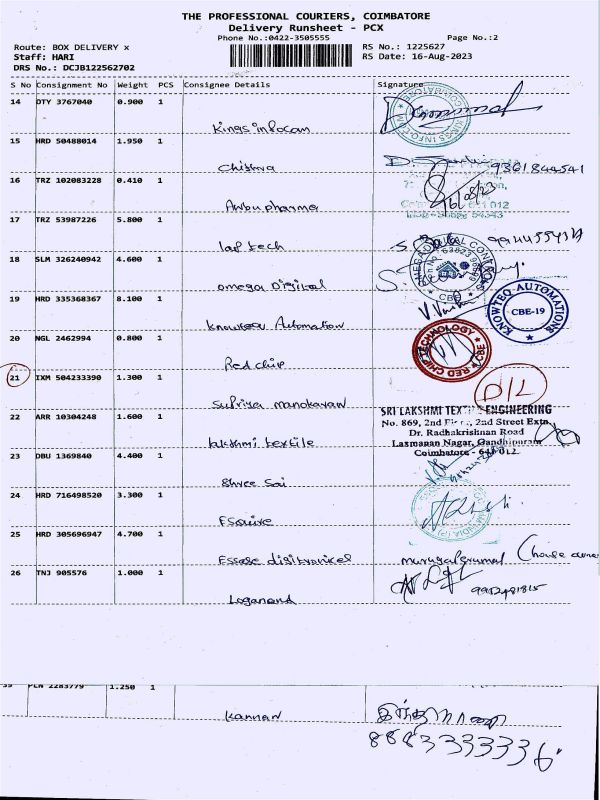 THE PROFESSIONAL COURIERS, COIMBATORE
Delivery Runsheet - PCX
Phone No.:0422-3505555 Page No.:2
Route: BOX DELIVERY x RS No.: 1225627
Staff: HARI RS Date: 16-Aug-2023
DRS No.: DCJB122562702
S No Consignment No Weight PCS Consignee Details Signature
14 DTY 3767040 0.900 1
Kings infocom
15 HRD 50488014 1.950 1
Chithra 9361844541
16 TRZ 102083228 0.410 1
Anbu pharma 16/08/23
17 TRZ 53987226 5.800 1
lap tech
18 SLM 326240942 4.600 1
omega Digital
19 HRD 335368367 8.100 1
Knowteq Automation
KNOWTEQ AUTOMATIONS
CBE-19
20 NGL 2462994 0.800 1
Red chip
RED CHIP TECHNOLOGY
CBE
21 IXM 504233390 1.300 1
Supriya manokaran D/L
22 ARR 10304248 1.600 1
lakshmi textile
SRI LAKSHMI TEXTILE ENGINEERING
No. 869, 2nd Floor, 2nd Street Extn,
Dr. Radhakrishnan Road
Laxmanan Nagar, Gandhipuram
Coimbatore - 641 012.
23 DBU 1369840 4.400 1
Shree Sai
24 HRD 716498520 3.300 1
Esquire
25 HRD 305696947 4.700 1
Essae digitronics murugaperumal
26 TNJ 905576 1.000 1
Loganand 9952481815
39 PLN 2283779 1.250 1
Kannan
8883333336